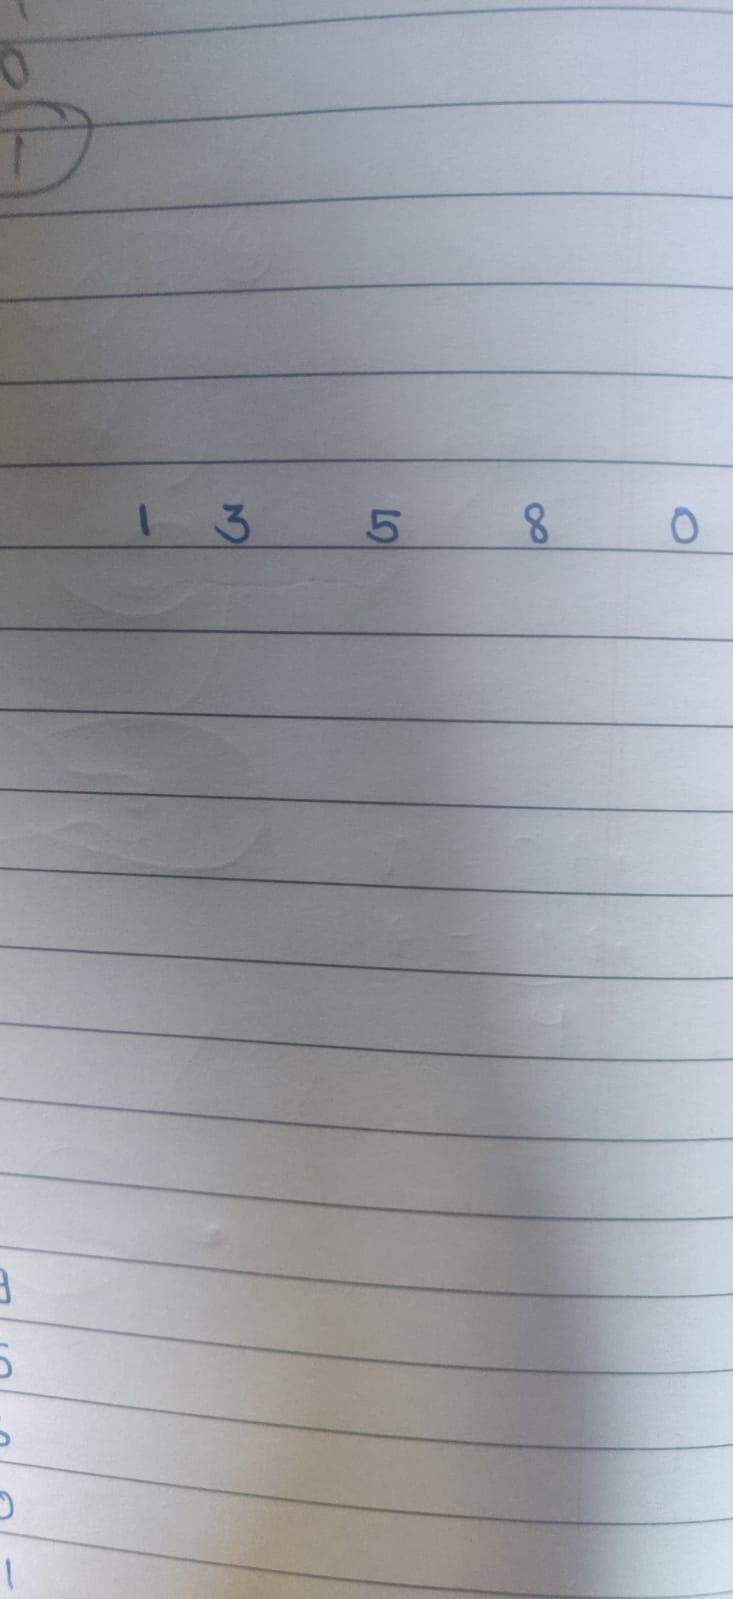 0
1
1 3 5 8 0
5
0
1